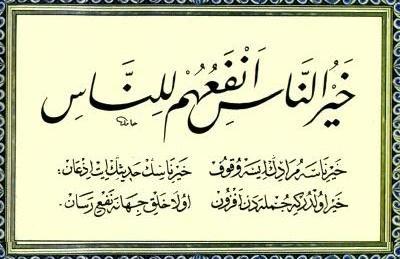 خَيْرُ النَّاسِ اَنْفَعُهُمْ لِلنَّاسِ
خير ناسه مرادك ايسه وقوف خير ناسك حديثك ايت اذعان :
خير اولدر كه جمله دن افزون اولا خلق جهانه نفع رسان .